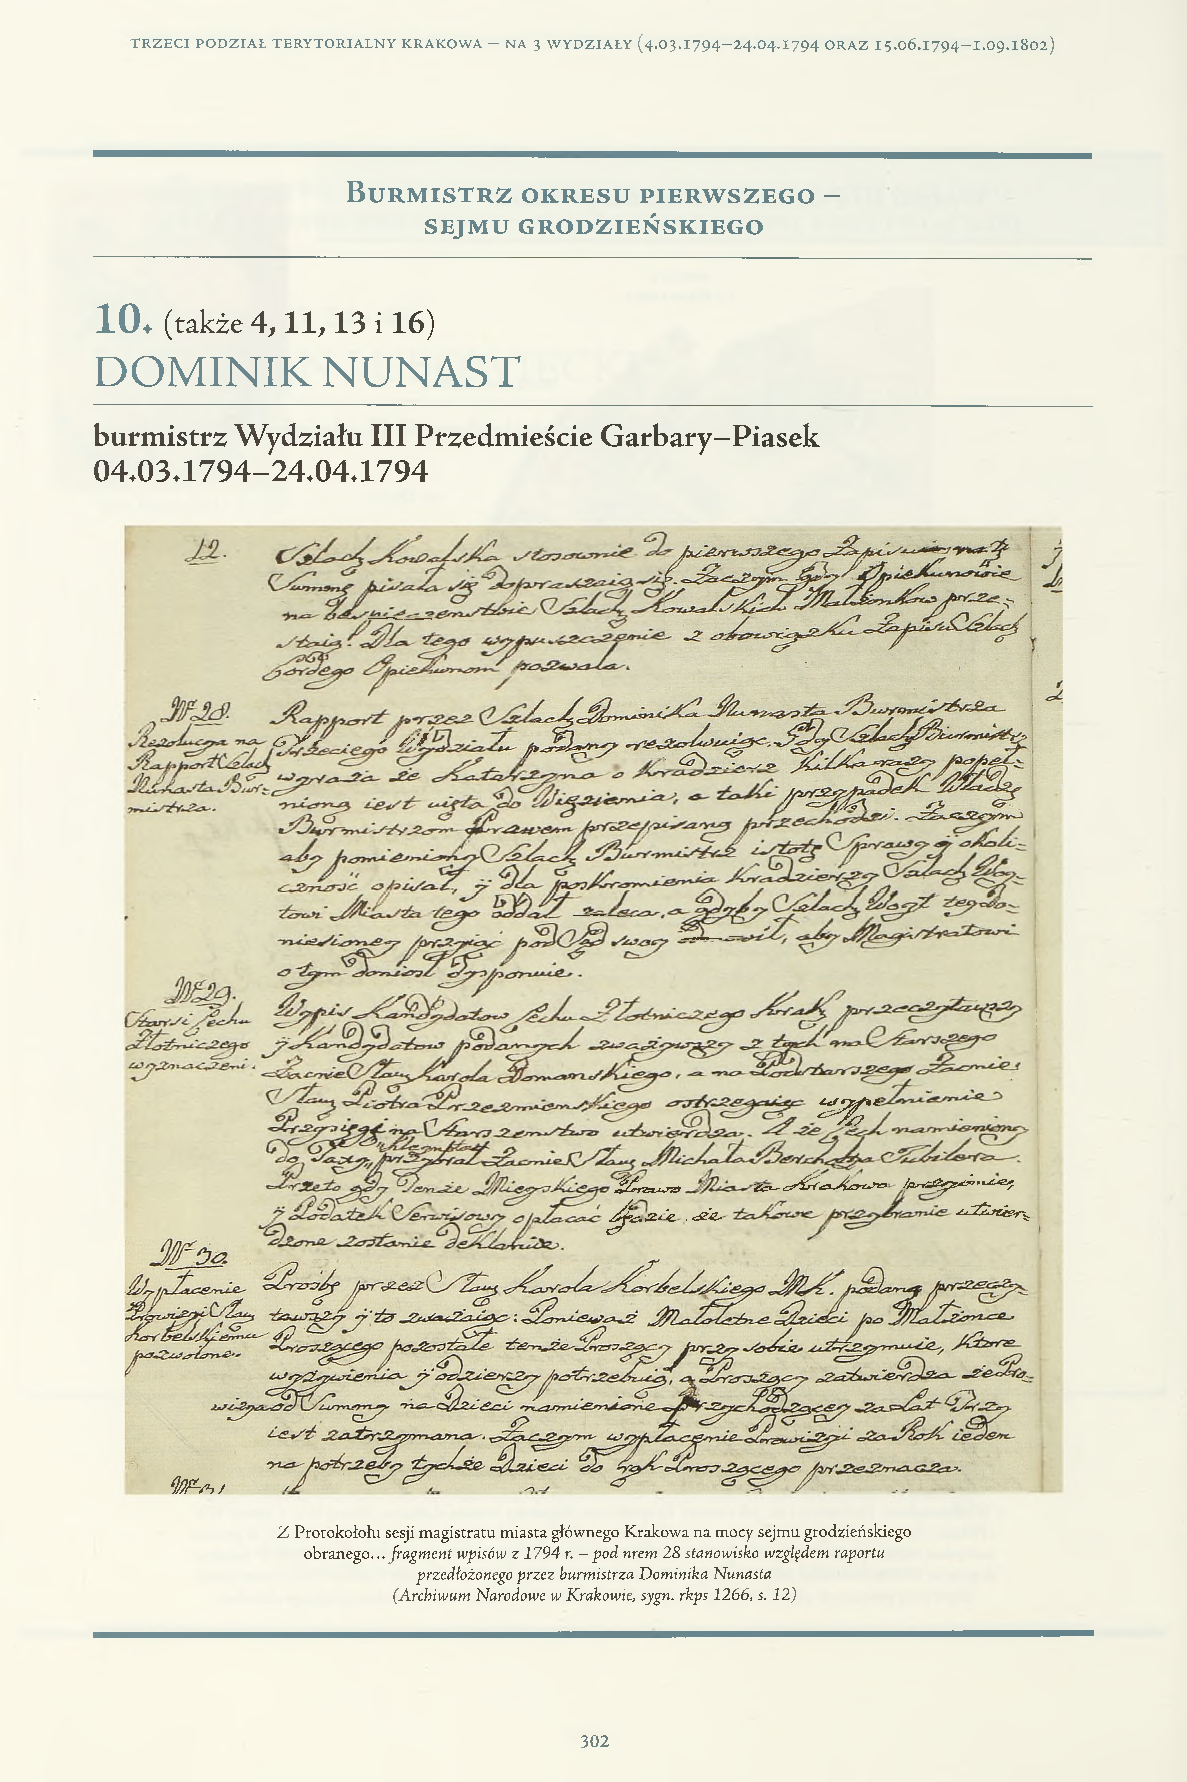 TRZECI PODZIAŁ TERYTORIALNY KRAKOWA – NA 3 WYDZIAŁY (4.03.1794–24.04.1794 ORAZ 15.06.1794–1.09.1802)
BURMISTRZ OKRESU PIERWSZEGO –
SEJMU GRODZIEŃSKIEGO
10. (także 4, 11, 13 i 16)
DOMINIK NUNAST
burmistrz Wydziału III Przedmieście Garbary–Piasek
04.03.1794–24.04.1794
12.
Szlach Kowalska stosownie do pierwszego Zapisu
Summę pisała się dopraszaią się. Zaczym gdy Opiekunowie
na bespieczenstwie Szlach Kowalskich Małżonkow prze-
staią. Dla tego wypuszczenie z obowiązku Zapisu Szlach
Opiekunom pozwala.
N° 28.
Rezolucya na
Rapport Szlach
Nunasta Bur-
mistrza.
Rapport przez Szlach Dominika Nunasta Burmistrza
Trzeciego Wydziału podany rezolwuiąc. Gdy Szlach Burmistrz
wyraża że Katarzyna o kradzierz kilka razy popeł-
nioną iest wzięta do Więzienia, a taki przypadek Władzę
Burmistrzom Prawem przepisaną przechodzi. Zaczym
aby pomieniony Szlach Burmistrz istotę Sprawy y okoli-
czność opisał, y dla poskromienia kradzierzy Szlach Woy-
towi Miasta tego oddał zaleca, a gdyby Szlach Woyt tey do-
niesioney przyiąć pod Sąd swoy odmowił, aby Magistratowi
o tym doniosł dysponuie.
N° 29.
Starsi Cechu
Złotniczego
wyznaczeni.
Wypis Kandydatow Cechu Złotniczego Krak przeczytawszy
y Kandydatow podanych zważywszy z tych na Starszego
Zacnie Sław Karola Domanskiego, a na Podstarszego Zacnie
Sław Piotra Przezmienskiego ostrzegaiąc wypełnienie
Przysięgi na Starszenstwo utwierdza. A że Cech namieniony
do przybrał Zacnie Sław Michała Jubilera.
Przeto gdy Tenże Mieyskiego Prawo Miasta Krakowa przyimie,
y Podatek Serwisowy opłacać będzie, że takowe przybranie utwier-
dzone zostanie deklaruie.
N° 30.
Wypłacenie
Prowizyi Sław
Korbelskiemu
pozwolone.
Prośbę przez Sław Karola Korbelskiego M.K. podaną przeczy-
tawszy y to zważaiąc: Ponieważ Małoletne Dzieci po Małżonce
Proszącego pozostałe tenże Proszący przy sobie utrzymuie, ktore
wyżywienia y odzierzy potrzebuią, a Proszący zatwierdza że Pro-
wizya od Summy na Dzieci namienione przychodzącey za Lat Trzy
iest zatrzymana. Zaczym wypłacenie Prowizyi za Rok ieden
na potrzeby tychże Dzieci do rąk Proszącego przeznacza.
Z Protokołołu sesji magistratu miasta głównego Krakowa na mocy sejmu grodzieńskiego
obranego... fragment wpisów z 1794 r. – pod nrem 28 stanowisko względem raportu
przedłożonego przez burmistrza Dominika Nunasta
(Archiwum Narodowe w Krakowie, sygn. rkps 1266, s. 12)
302